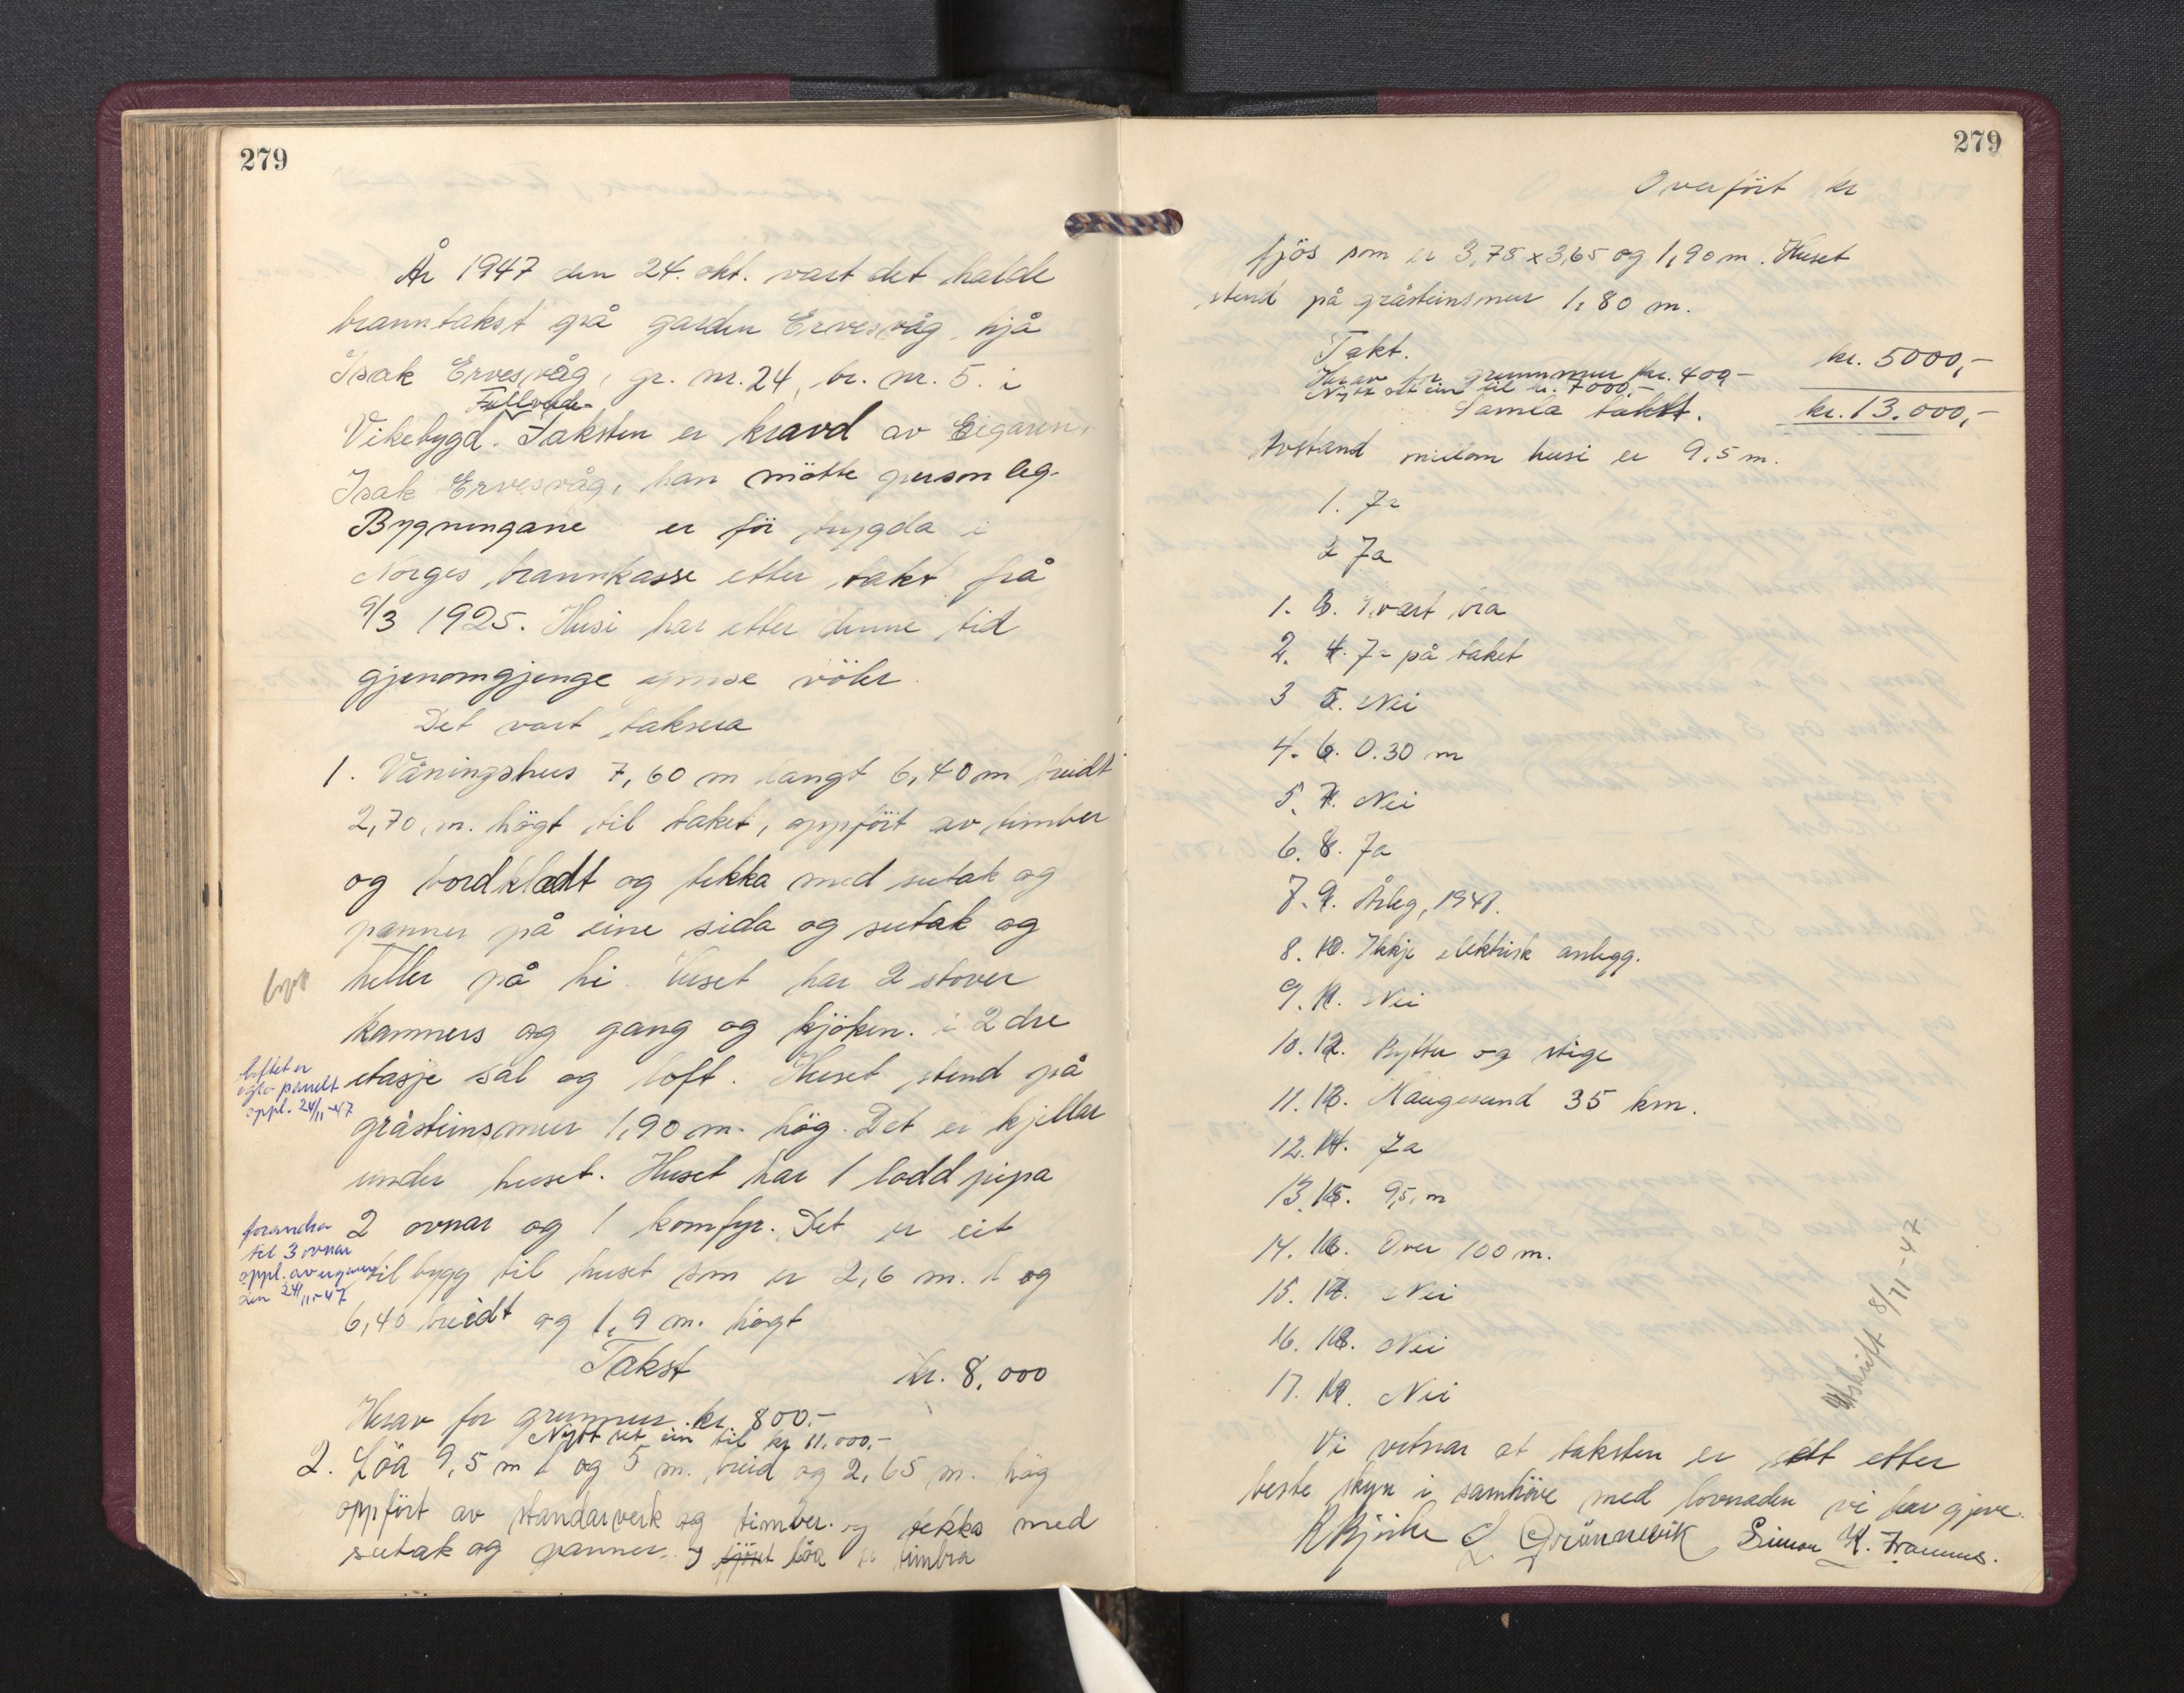 279
År 1947 den 24. okt. vart det halde
branntakst på garden Ervesvåg, hjå
Isak Ervesvåg, gr. nr. 24, br. nr. 5. i
Vikebygd. Taksten er kravd av Eigaren,
Isak Ervesvåg, han mötte personleg.
Bygningane er för trygda i
Norges brannkasse etter takst frå
9/3 1925. Husi har etter denne tid
gjenomgjenge ymse völer.
Det vart taksera
1. Våningshus 7,60 m langt 6,40 m breidt
2,70 m. högt til taket, oppfört av timber
og bordklædt og tekka med sutak og
panner på eine sida og sutak og
heller på hi. Huset har 2 stover
kammers og gang og kjöken. i 2 dre
loftet er
etasje sal og loft. Huset stend på
panelt
oppl. 24/11-47
gråsteinsmur 1,90 m. hög. Det er kjellar
under huset. Huset har 1 lodd pipa
forandra
til 3 ovnar
oppl. av eigaren
den 24/11-47
2 ovnar og 1 komfyr. Det er eit
tilbygg til huset som er 2,6 m. l og
6,40 breidt og 1,9 m. högt
Takst kr. 8,000
Herav for grunmur kr. 800.-
Nytt set ein til kr 11.000.-
2. Löa 9,5 m l og 5 m. breid og 2,65 m. hög
oppfört av standarverk og timber og tekka med
sutak og panner. fjöset löa er timbra
279
Overfört kr
fjös som er 3,75 x 3,65 og 1,90 m. Huset
stend på gråsteinsmur 1,80 m.
Takt. kr. 5000,-
Herav for grunnmur kr. 400,-
Nytt set ein til kr. 7000,-
Samla takst. kr. 13.000,-
Avstand millom husi er 9,5 m.
1. Ja
2 Ja
1. 3. Svært bra
2. 4. Ja på taket
3 5. Nei
4. 6. 0.30 m
5. 7. Nei
6. 8. Ja
7. 9. Årleg, 1947.
8. 10. Ikkje elektrisk anlegg.
9. 11. Nei
10. 12. Bytter og stige
11. 13. Haugesund 35 km.
12. 14. Ja
13. 15. 9,5 m
14. 16. Over 100 m.
15. 17. Nei
16. 18. Nei
17. 19. Nei
Utskrift 8/11-47
Vi vitnar at taksten er sett etter
beste skyn i samhöve med lovnaden vi hav gjeve.
Grönnevik Simon K.